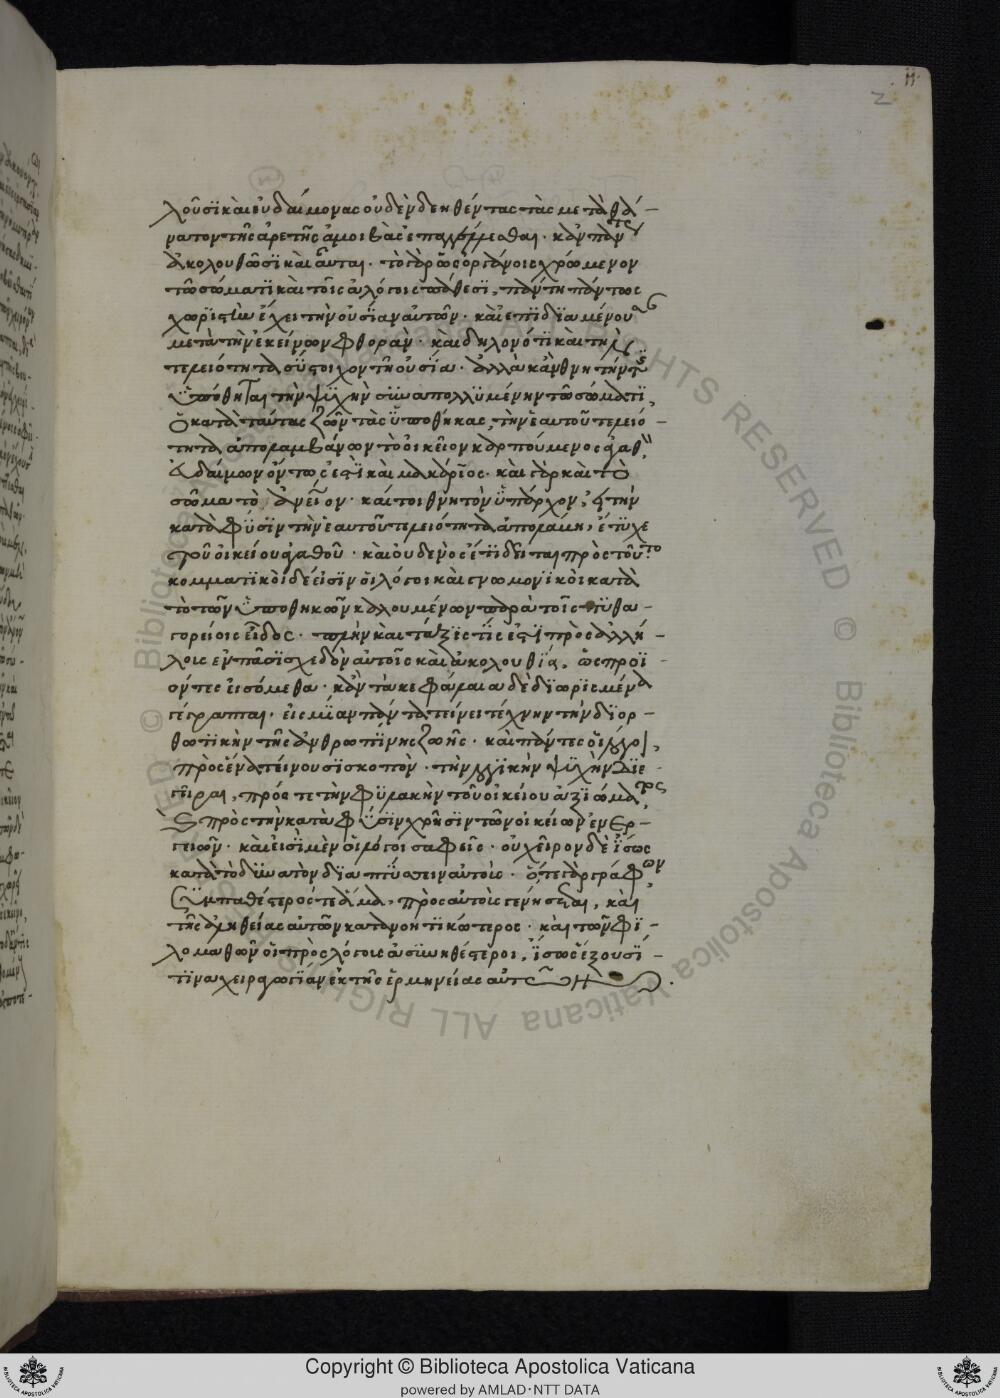 11
2
λοῦσι καὶ εὐδαίμονας οὐδὲν δεηθέντας τὰς μετὰ θά-
νατον τῆς ἀρετῆς ἀμοιβὰς ἐπαγγέλλεσθαι. κἂν πάντες
ἀκολουθῶσι καὶ αὗται. τὸ γὰρ ὡς ὀργάνοις χρώμενον
τῷ σώματι καὶ τοῖς ἀλόγοις πάθεσι, πάντῃ πάντως
χωριστὴν ἔχει τὴν οὐσίαν αὐτῶν. καὶ ἐπιδιαμένουσαν
μετὰ τὴν ἐκείνων φθοράν. καὶ δηλονότι καὶ τὴν
τελειότητα σύστοιχον τῇ οὐσίᾳ. ἀλλὰ κἂν θνητήν τις
ὑπόθηται τὴν ψυχὴν συναπολλυμένην τῷ σώματι,
ὁ κατὰ ταύτας ζῶν τὰς ὑποθήκας, τὴν ἑαυτοῦ τελειό-
τητα ἀπολαμβάνων τὸ οἰκεῖον καρπούμενος ἀγαθὸν
εὐδαίμων ὄντως ἐστὶ καὶ μακάριος. καὶ γὰρ καὶ τὸ
σῶμα τὸ ἀνθρώπειον. καίτοι θνητὸν ὑπάρχον,
κατὰ φύσιν τὴν ἑαυτοῦ τελειότητα ἀπολάβῃ, ἔτυχε
τοῦ οἰκείου ἀγαθοῦ. καὶ οὐδενὸς ἔτι δεῖται πρὸς τοῦτο
κομματικοὶ δέ εἰσιν οἱ λόγοι καὶ γνωμονικοὶ κατὰ
τὸ τῶν ὑποθηκῶν καλουμένων παρὰ τοῖς πυθα-
γορείοις εἶδος. πλὴν καὶ τάξις τίς ἐστι πρὸς ἀλλή-
λοις ἐν πᾶσι σχεδὸν αὐτοῖς καὶ ἀκολουθία, ὡς προϊ-
όντες εἰσόμεθα. κἂν τὰ κεφάλαια δὲ διωρισμένα
γέγραπται. εἰς μίαν πάντα τείνει τέχνην τὴν διορ-
θωτικὴν τῆς ἀνθρωπίνης ζωῆς. καὶ πάντες οἱ λόγοι,
πρὸς ἕνα τείνουσι σκοπόν. τὴν λογικὴν ψυχὴν διε-
γεῖραι, πρός τε τὴν φυλακὴν τοῦ οἰκείου ἀξιώματος
καὶ πρὸς τὴν κατὰ φύσιν χρῆσιν τῶν οἰκείων ἐνερ-
γειῶν. καὶ εἰσὶ μὲν οἱ λόγοι σαφεῖς. οὐ χεῖρον δὲ ἴσως
κατὰ τὸ δυνατὸν διαπτύσσειν αὐτούς. ὅ τε γὰρ γράφων,
συμπαθέστερός τε ἅμα πρὸς αὐτοὺς γενήσεται, καὶ
τῆς ἀληθείας αὐτῶν κατανοητικώτερος. καὶ τῶν φι-
λομαθῶν οἱ πρὸς λόγοις ἀσυνηθέστεροι, ἴσως ἕξουσί
τινα χειραγωγίαν ἐκ τῆς ἑρμηνείας αὐτῶν
Copyright © Biblioteca Apostolica Vaticana
powered by AMLAD·NTT DATA